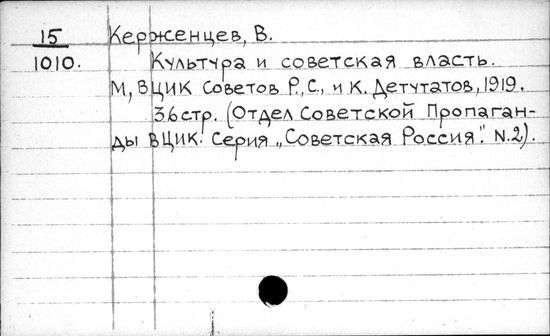 15 Керженцев, В.
1010. Культура и советская власть.
М, ВЦИК Советов Р., С., и К. Детутатов, 1919.
36стр. (Отдел Советской Пропаган-
ды ВЦИК. Серия „Советская Россия". N.2).